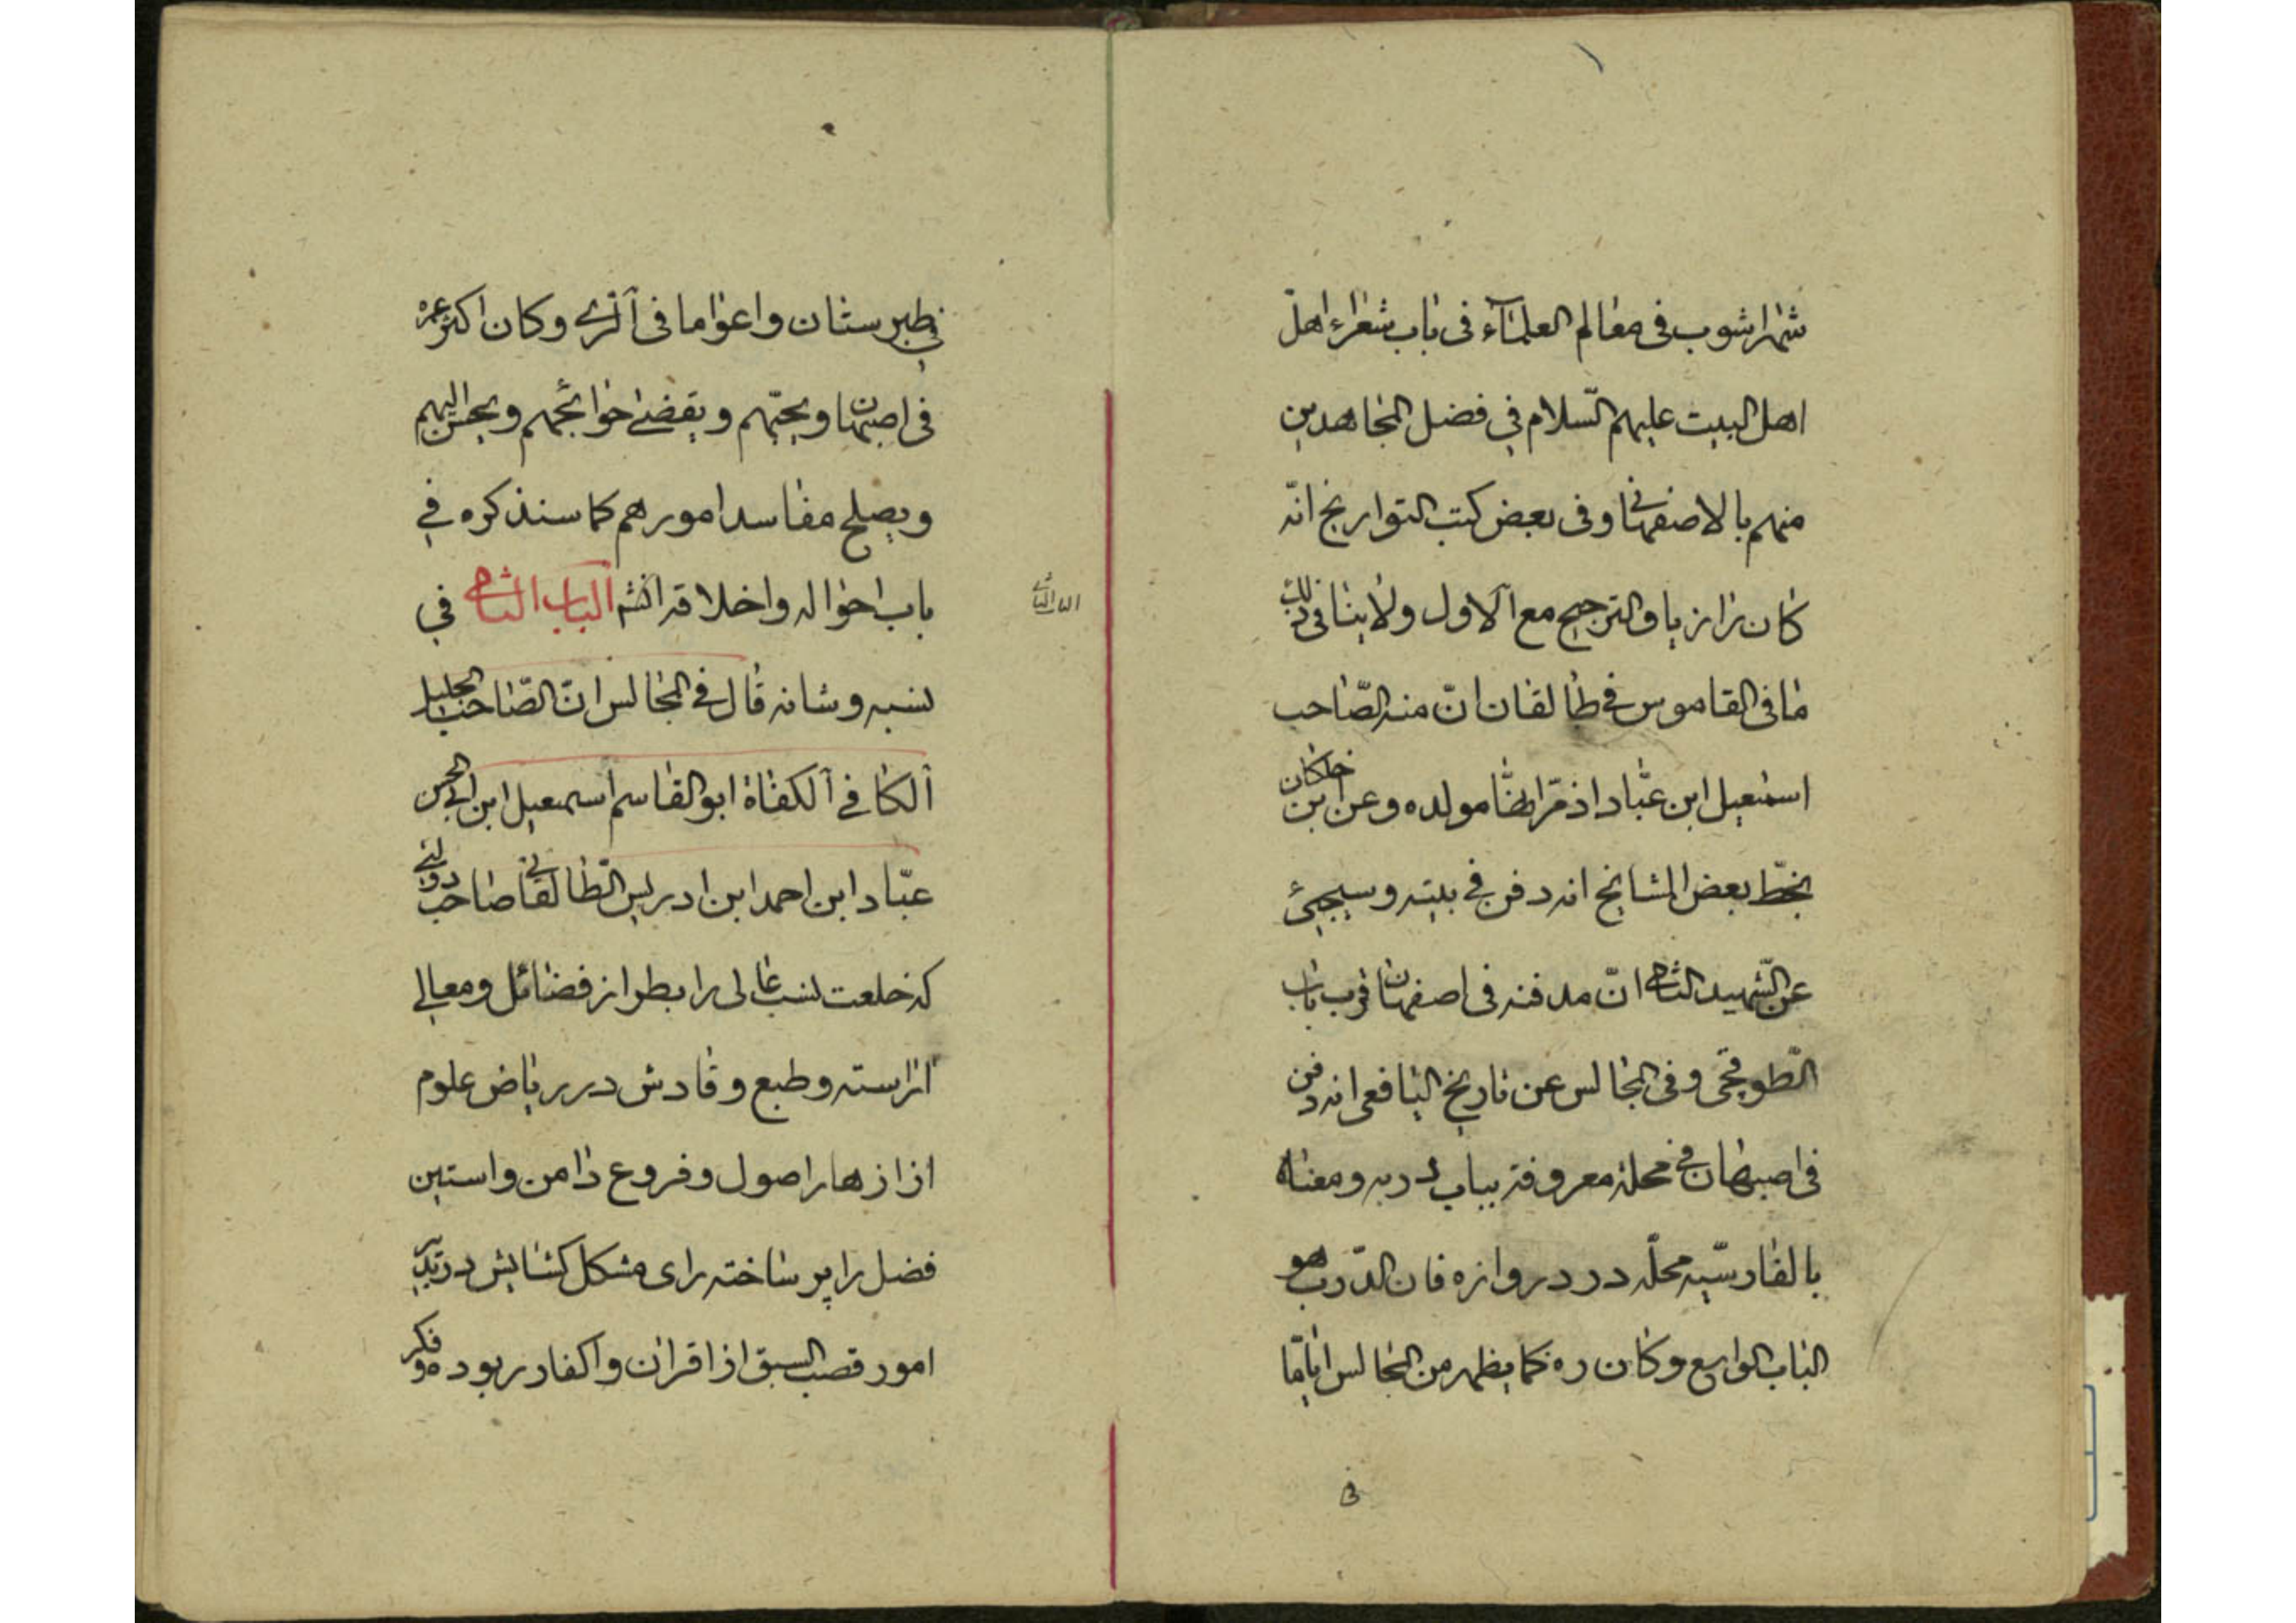 شهراشوب في معالم العلماء في باب شعراء اهل
اهل البيت عليهم السلام في فضل المجاهدين
منهم بالاصفهاني وفي بعض كتب التواريخ انّه
كان رازيا والترجيح مع الاول ولا ينافي ذلك
ما في القاموس في طالقان انّ منه الصّاحب
اسمعيل ابن عبّاد اذ مولده وعن ابن خلكان
بخطّ بعض المشايخ انه دفن في بيته وسيجيئ
عن الشّهيد الثاني انّ مدفنه في اصفهان قرب باب
الطّوقچى وفي المجالس عن تاريخ اليافعي انه دفن
في اصبهان في محلة معروفة بباب دربه ومعناه
بالفارسّيه محلّه در دروازه فان الدّرب هو
الباب الواسع وكان ره كما يظهر من المجالس ايّاما
في
في طبرستان واعواما في الرّى وكان اكثر عمره
في اصبهان ويحبّهم ويقضى حوائجهم ويحسن اليهم
ويصلح مفاسد امورهم كما سنذكره في
باب احواله واخلاقه انشه الباب الثاني في
الباب الثاني
نسبه وشانه قال في المجالس انّ الصّاحب الجليل
الكافي الكفاة ابو القاسم اسمعيل ابن ابي الحسن
عبّاد ابن احمد ابن ادريس الطّالقاني صاحب دولتى
كه خلعت نسب عالى را بطراز فضائل ومعالى
اراسته وطبع وقادش در رياض علوم
از ازهار اصول وفروع دامن واستين
فضل را پر ساخته راى مشكل كشايش در تدبير
امور قصب السبق از اقران واكفا در ربوده و فكر